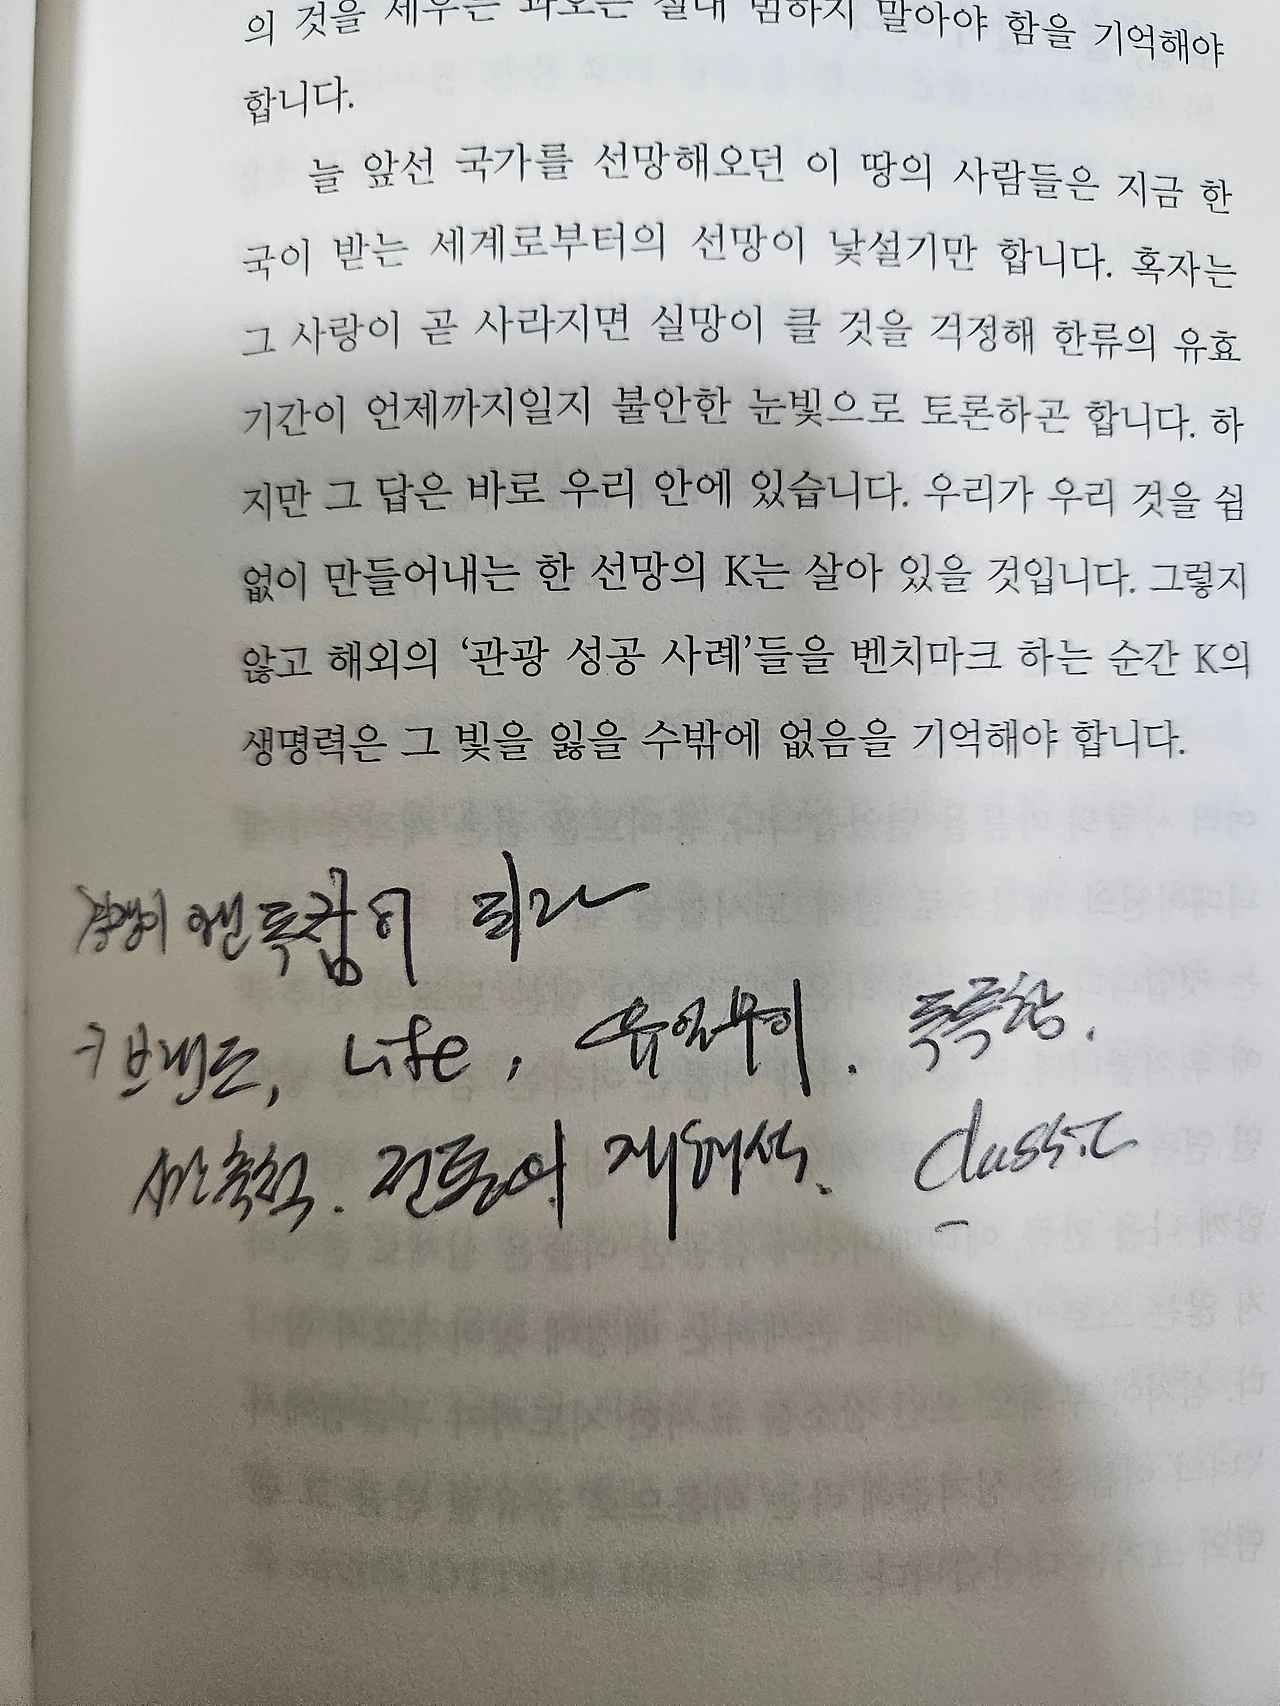 의 것을 세우는 과오는 절대 범하지 말아야 함을 기억해야
합니다.
늘 앞선 국가를 선망해오던 이 땅의 사람들은 지금 한
국이 받는 세계로부터의 선망이 낯설기만 합니다. 혹자는
그 사랑이 곧 사라지면 실망이 클 것을 걱정해 한류의 유효
기간이 언제까지일지 불안한 눈빛으로 토론하곤 합니다. 하
지만 그 답은 바로 우리 안에 있습니다. 우리가 우리 것을 쉼
없이 만들어내는 한 선망의 K는 살아 있을 것입니다. 그렇지
않고 해외의 ‘관광 성공 사례’들을 벤치마크 하는 순간 K의
생명력은 그 빛을 잃을 수밖에 없음을 기억해야 합니다.
독점이 되라
브랜드, Life, 유일무이. 독특함.
전통의 재해석. Classic